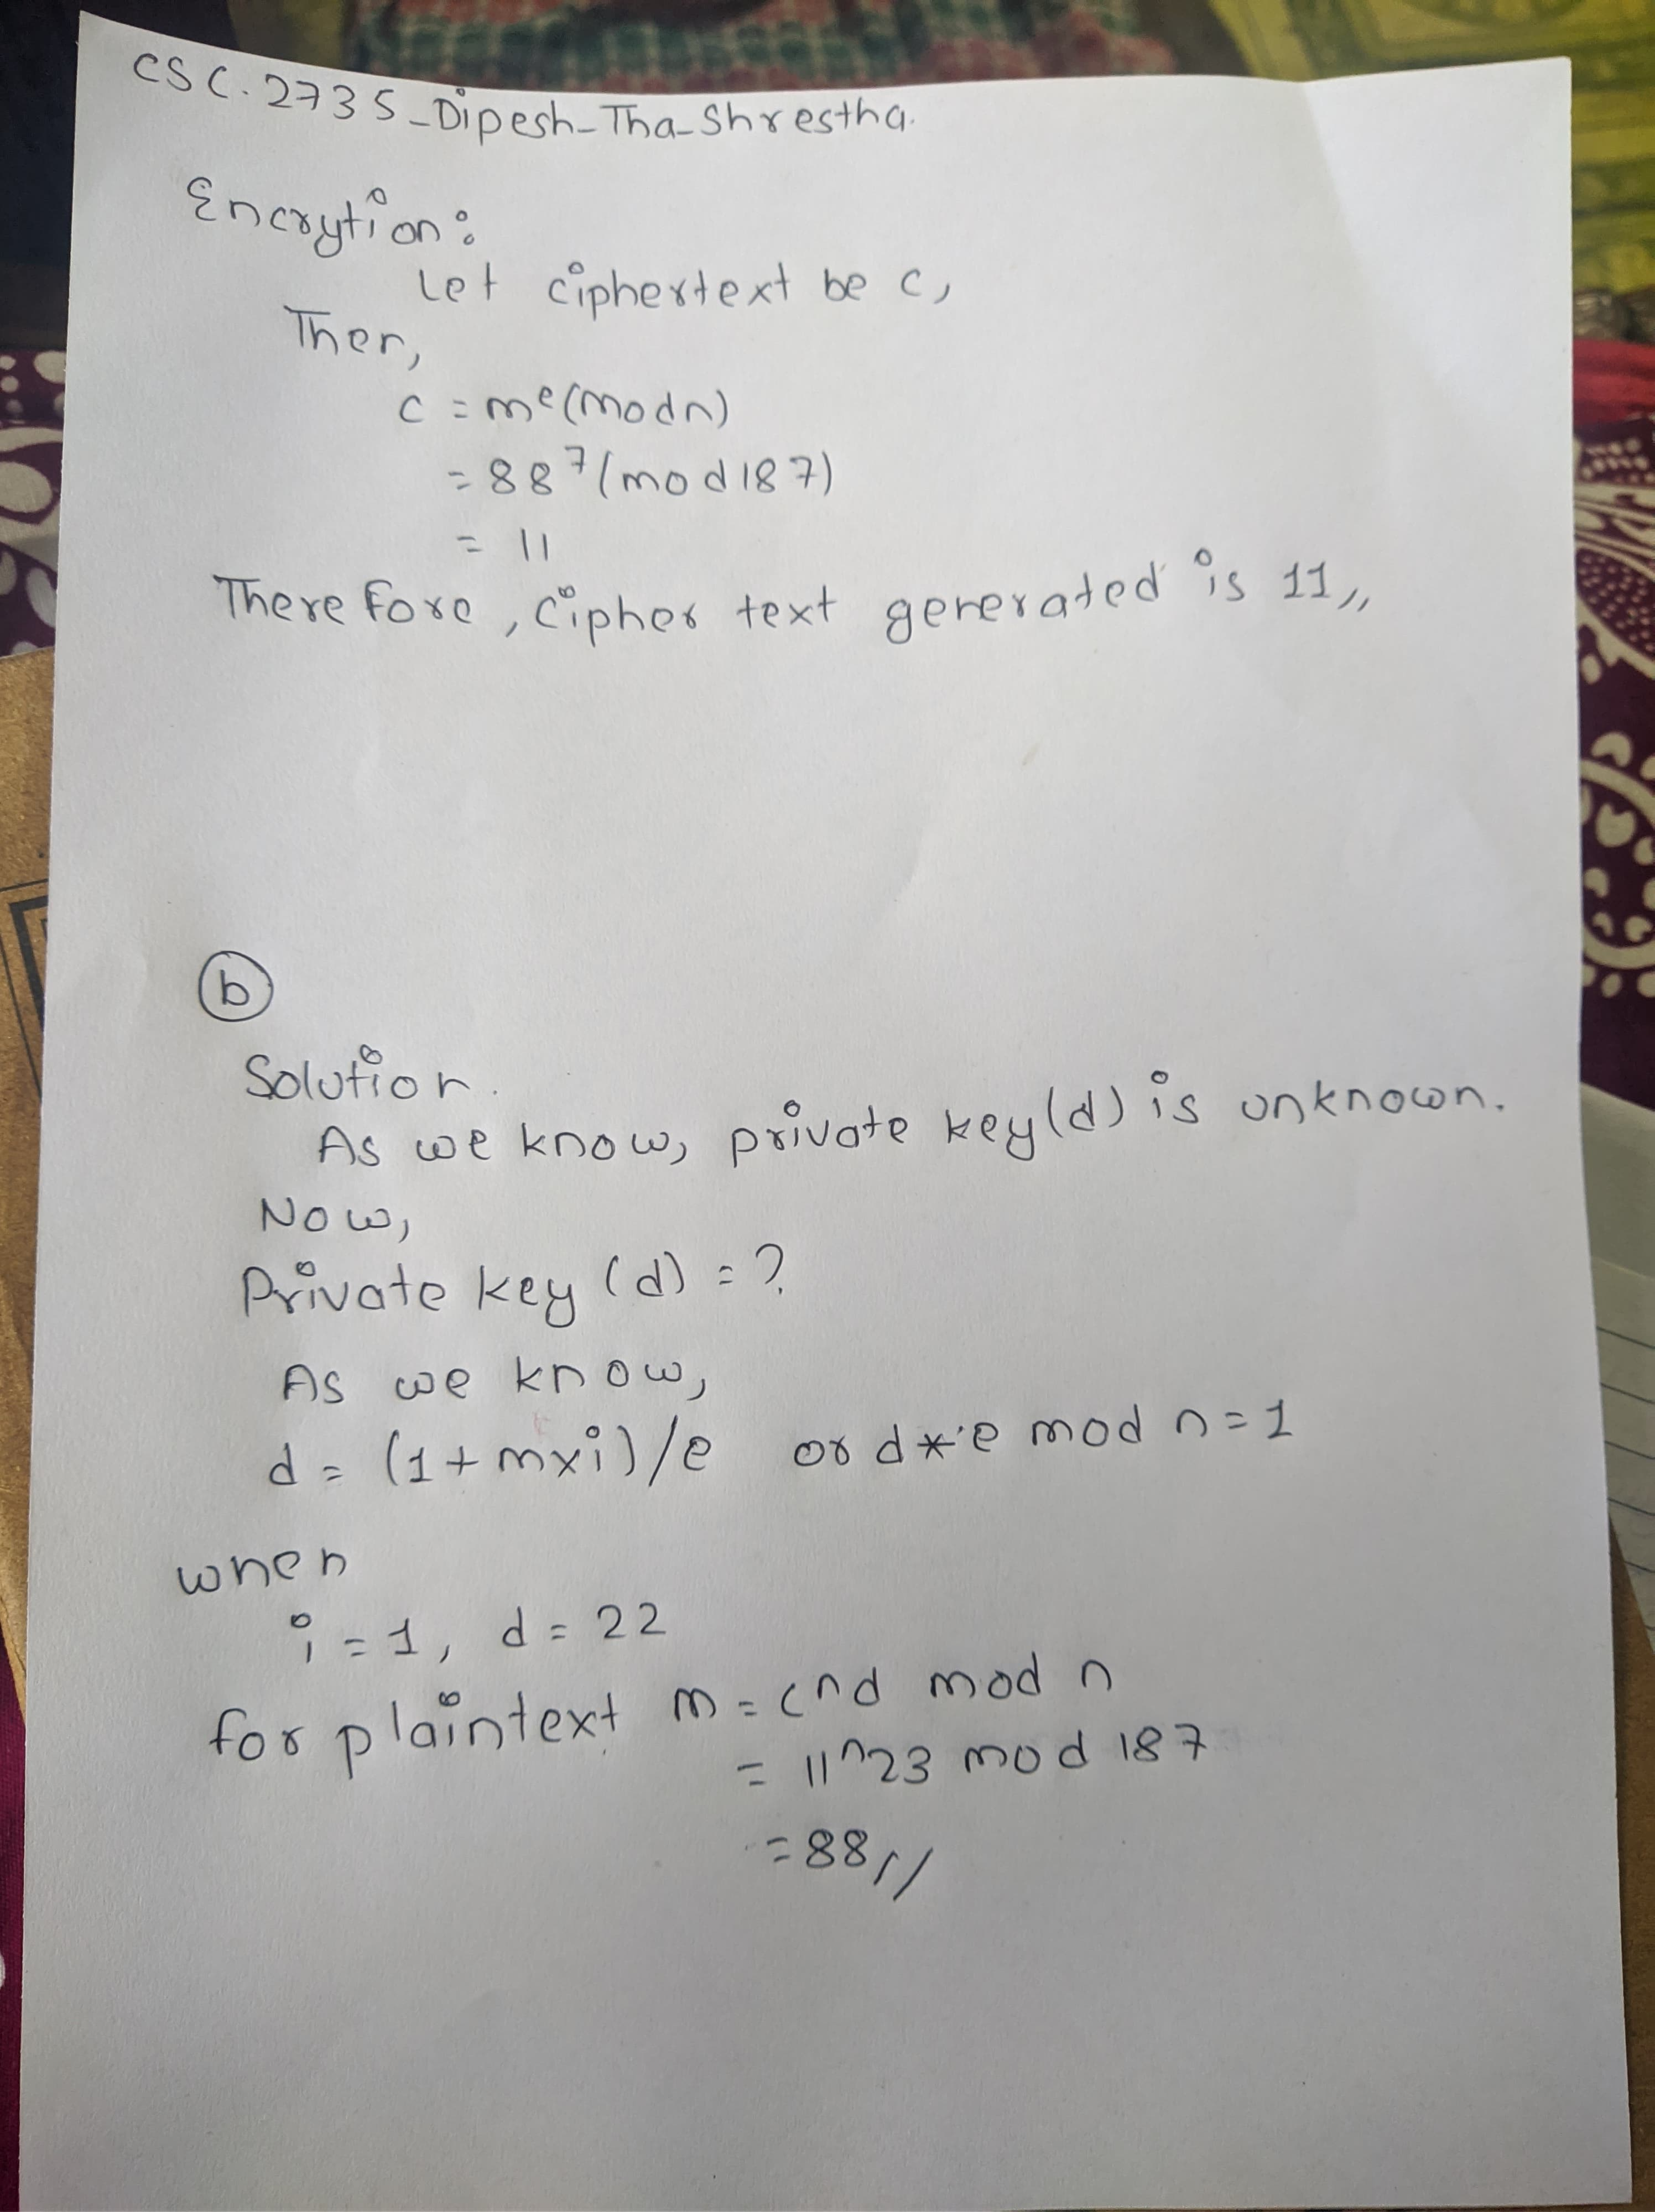 CSC.2735_Dipesh_Tha_Shrestha.
Encrytion:
Let ciphertext be c,
Then,
c = m^e(mod n)
= 88^7(mod 187)
= 11
Therefore, Cipher text generated is 11,,
(b)
Solution.
As we know, private key(d) is unknown.
Now,
Private key (d) = ?
As we know,
d = (1+mxi)/e or d*e mod n = 1
when
i = 1, d = 22
for plaintext m = c^d mod n
= 11^23 mod 187
= 88//